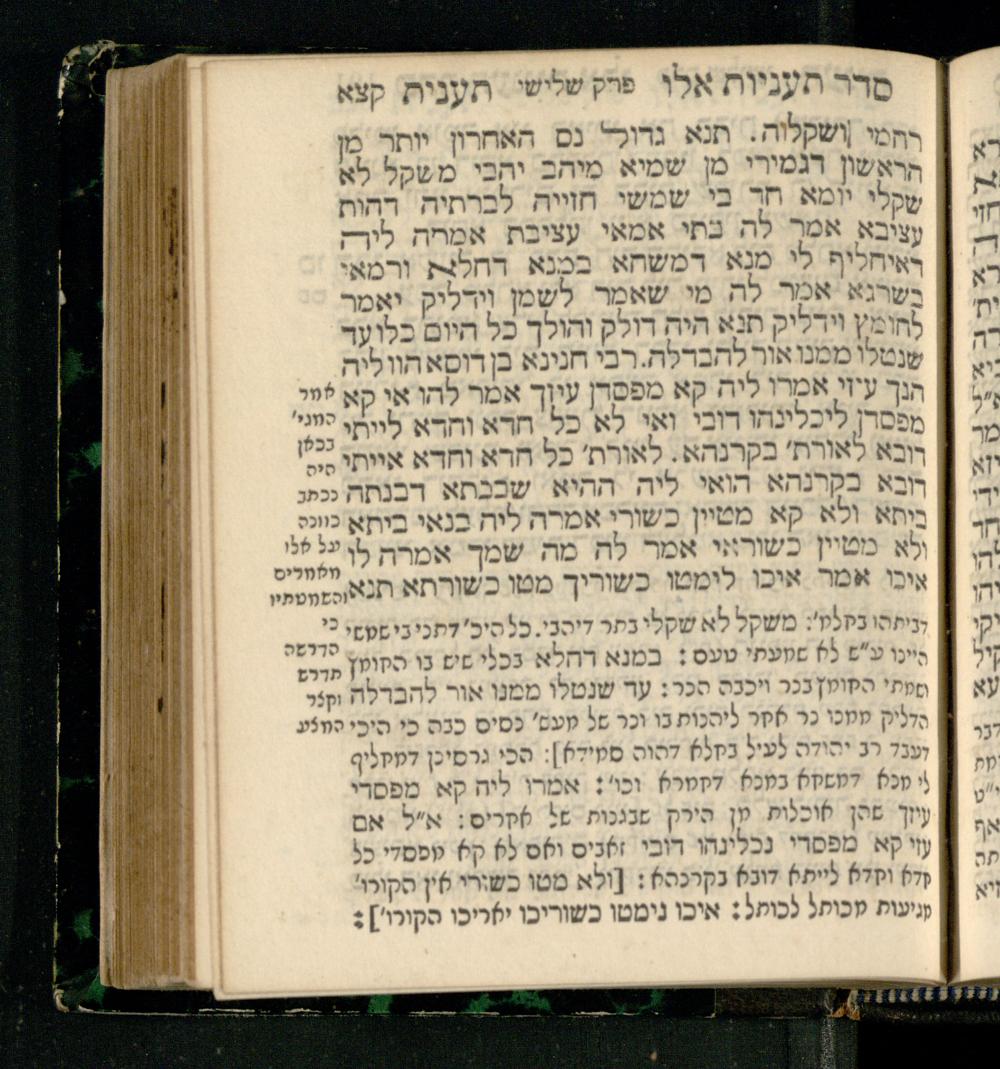 סדר תעניות אלו פרק שלישי תענית קצא
רחמי ושקלוה. תנא גדול נס האחרון יותר מן
הראשון דגמירי מן שמיא מיהב יהבי משקל לא
שקלי יומא חד בי שמשי חזייה לברתיה דהות
עציבא אמר לה בתי אמאי עציבת אמרה ליה
דאיחליף לי מנא דמשחא במנא דחלא ורמאי
בשרגא אמר לה מי שאמר לשמן וידליק יאמר
לחומץ וידליק תנא היה דולק והולך כל היום כלו עד
שנטלו ממנו אור להבדלה. רבי חנינא בן דוסא הוו ליה
הנך עיזי אמרו ליה קא מפסדן עיזך אמר להו אי קא
מפסדן ליכלינהו דובי ואי לא כל חדא וחדא לייתי
דובא לאורת' בקרנהא. לאורת' כל חדא וחדא אייתי
דובא בקרנהא הואי ליה ההיא שבבתא דבנתה
ביתא ולא קא מטיין כשורי אמרה ליה בנאי ביתא
ולא מטיין כשוראי אמר לה מה שמך אמרה לו
איכו אמר איכו לימטו כשוריך מטו כשורתא תנא
דביתהו בחלמ': משקל לא שקלי בתר דיהבי. כל היכ' דתני בי שמשי
היינו ע"ש לא שמעתי טעם: במנא דחלא בכלי שיש בו חומץ
ושמתי החומץ בנר ויכבה הנר: עד שנטלו ממנו אור להבדלה
הדליק ממנו נר אחר ליהנות בו ונר של מעש' נסים כבה כי היכי
דעבד רב יהודה לעיל בחלא דהוה סמידא]: הכי גרסינן דמחליף
לי מנא דמשחא במנא דחמרא וכו': אמרו ליה קא מפסדי
עיזך שהן אוכלות מן הירק שבגנות של אחרים: א"ל אם
עזי קא מפסדי נכלינהו דובי זאבים ואם לא קא מפסדי כל
חדא וחדא לייתא דובא בקרנהא: [ולא מטו כשורי אין הקורו'
מגיעות מכותל לכותל: איכו נימטו כשוריכו יאריכו הקורו']:
אמר
המגי'
בכאן
היה
נכתב
כוונה
על אלו
מאמרים
והשמטתיו
כי
הדרשה
תדרש
וקצר
המצע